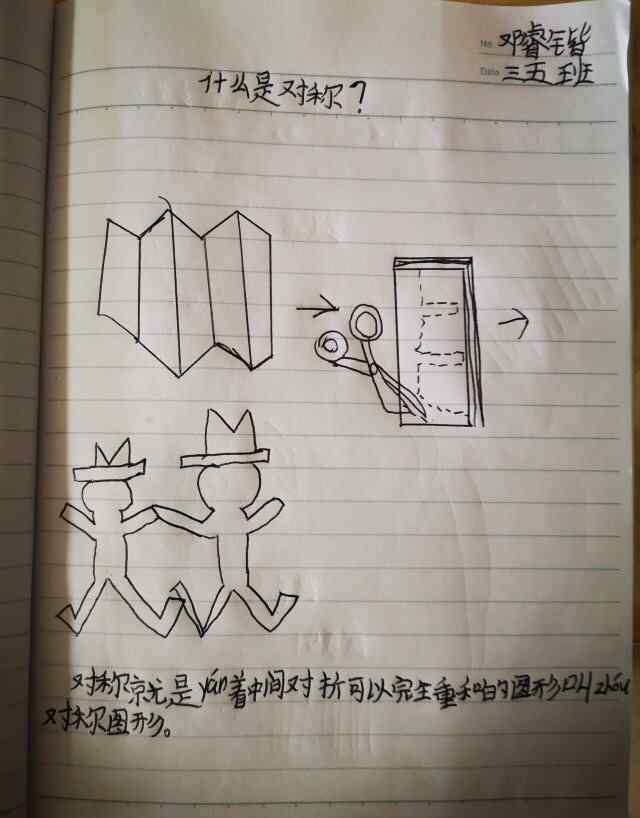 No 邓睿锴
Date 三五班
什么是对称?
对称就是yán着中间对折可以完全重和的图形叫zhóu
对称图形。